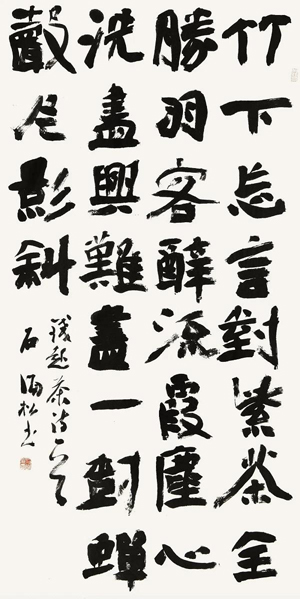 竹下忘言對紫茶全
勝羽客醉流霞塵心
洗盡興難盡一樹蟬
聲片影斜
錢起茶诗
石海松书